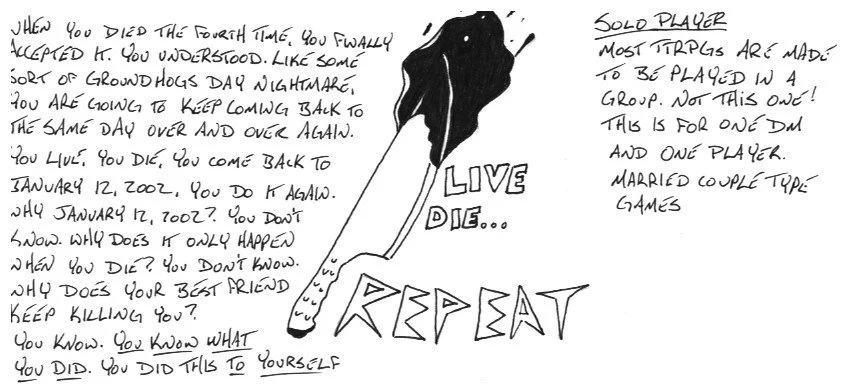 WHEN YOU DIED THE FOURTH TIME, YOU FINALLY
ACCEPTED IT. YOU UNDERSTOOD. LIKE SOME
SORT OF GROUNDHOGS DAY NIGHTMARE,
YOU ARE GOING TO KEEP COMING BACK TO
THE SAME DAY OVER AND OVER AGAIN.
YOU LIVE, YOU DIE, YOU COME BACK TO
JANUARY 12, 2002. YOU DO IT AGAIN.
WHY JANUARY 12, 2002? YOU DON'T
KNOW. WHY DOES IT ONLY HAPPEN
WHEN YOU DIE? YOU DON'T KNOW.
WHY DOES YOUR BEST FRIEND
KEEP KILLING YOU?
YOU KNOW. YOU KNOW WHAT
YOU DID. YOU DID THIS TO YOURSELF
LIVE
DIE...
REPEAT
SOLO PLAYER
MOST TTRPGS ARE MADE
TO BE PLAYED IN A
GROUP. NOT THIS ONE!
THIS IS FOR ONE DM
AND ONE PLAYER.
MARRIED COUPLE TYPE
GAMES